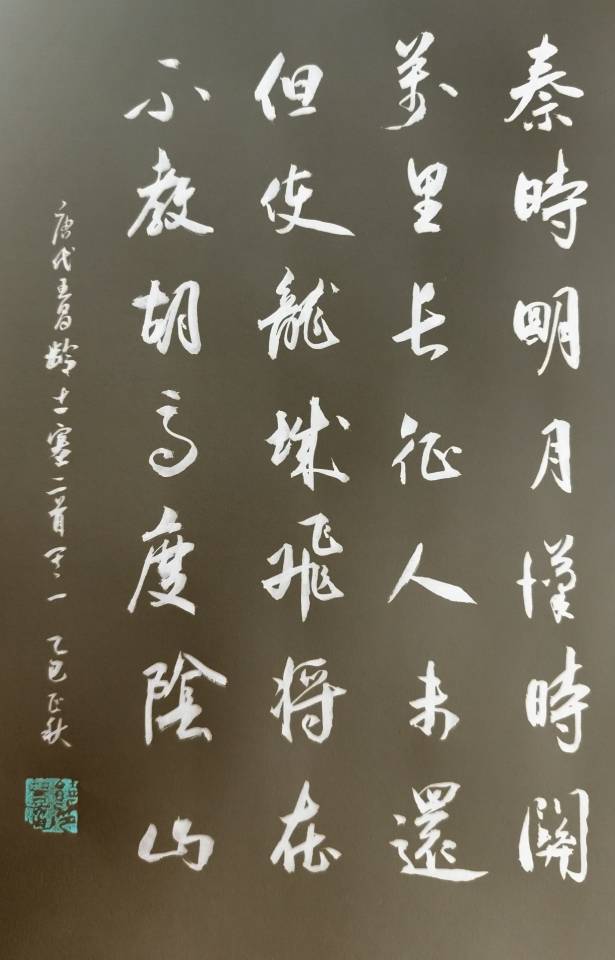 秦時明月漢時關
萬里长征人未還
但使龍城飛将在
不教胡马度陰山
唐代王昌龄出塞二首其一 乙巳正秋